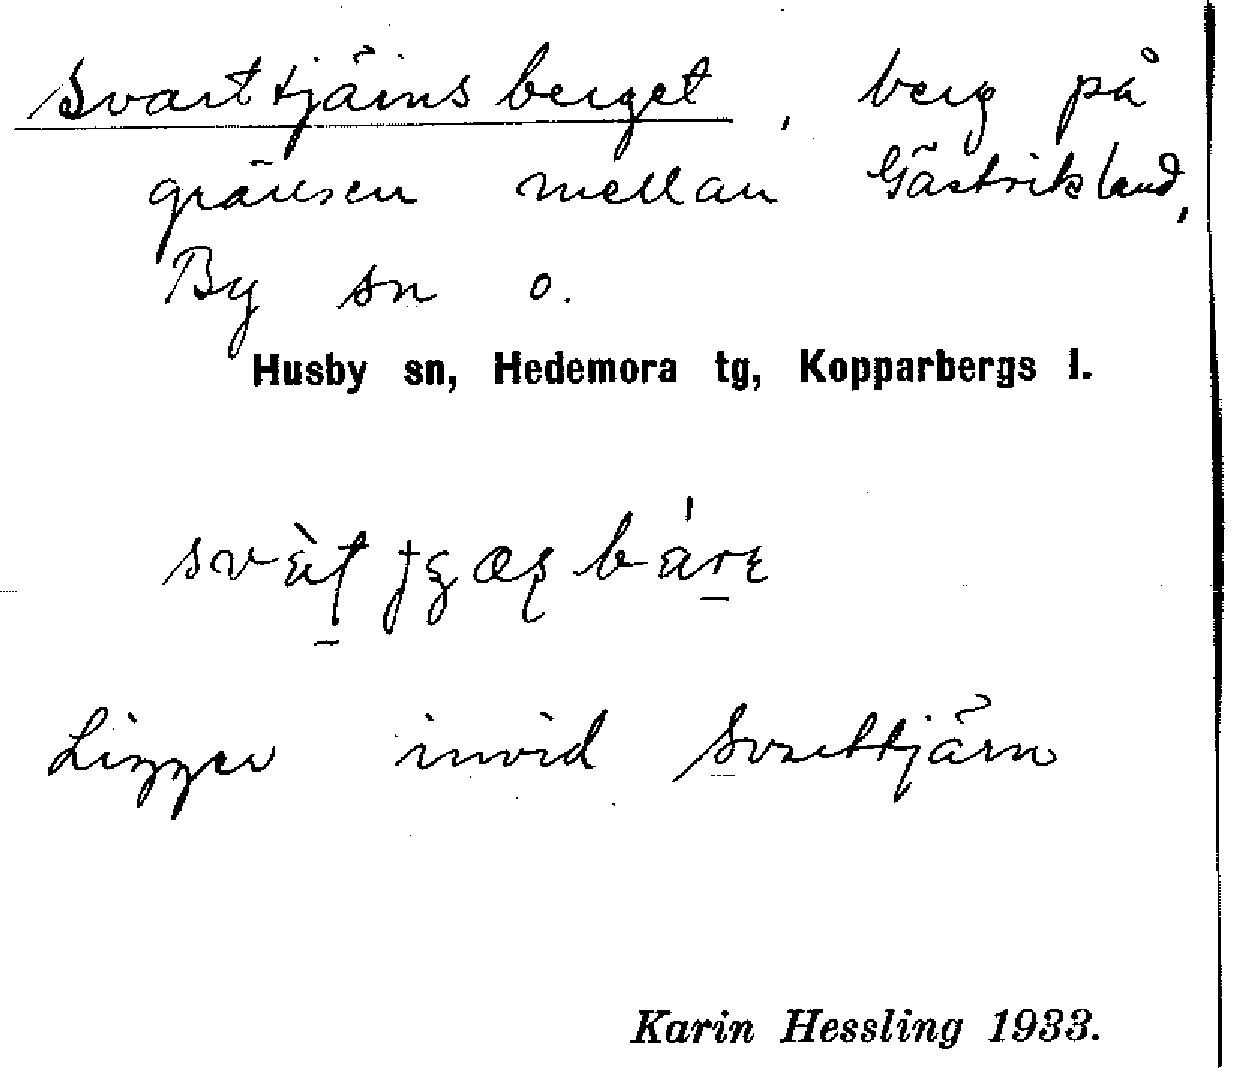 Svarttjärnsberget, berg på
gränsen mellan Gästrikland,
By sn o.
Husby sn, Hedemora tg, Kopparbergs l.
Ligger invid Svarttjärn
Karin Hessling 1933.